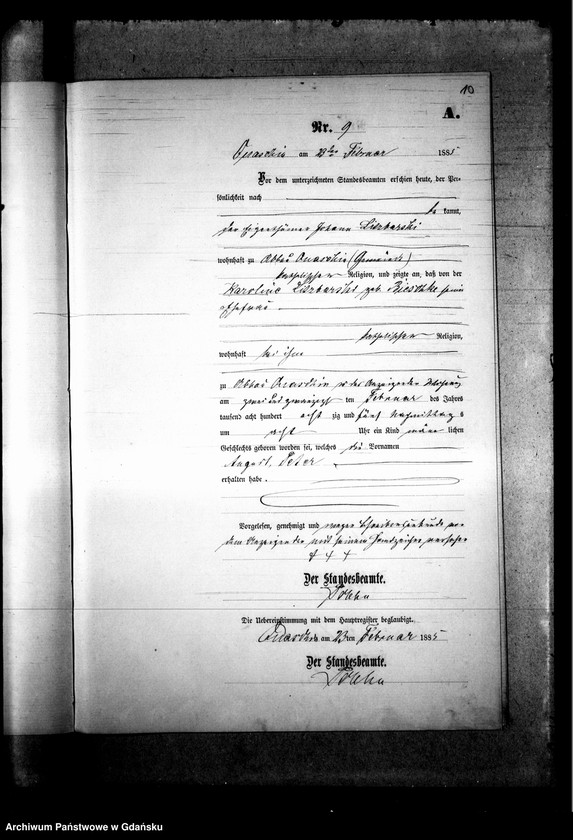 10
A.
Nr. 9
am 23ten Februar 1885
Vor dem unterzeichneten Standesbeamten erschien heute, der Per-
sönlichkeit nach
be kannt,
der Eigenthümer Johann Liszbarski
wohnhaft zu Abbau (Gemeinde)
katholischer Religion, und zeigte an, daß von der
Karoline Liszbarski geb. seiner
Ehefrau
katholischer Religion,
wohnhaft bei ihm
zu Abbau in der Anzeigenden Wohnung
am zwei und zwanzigsten Februar des Jahres
tausend acht hundert acht zig und fünf Nachmittag s
um acht Uhr ein Kind männ lichen
Geschlechts geboren worden sei, welches die Vornamen
August, Peter
erhalten habe.
Vorgelesen, genehmigt und wegen Schreibensunkunde von
dem Anzeigenden mit seinem Handzeichen versehen
† † †
Der Standesbeamte.
Die Uebereinstimmung mit dem Hauptregister beglaubigt.
am 23ten Februar 1885
Der Standesbeamte.
Archiwum Państwowe w Gdańsku